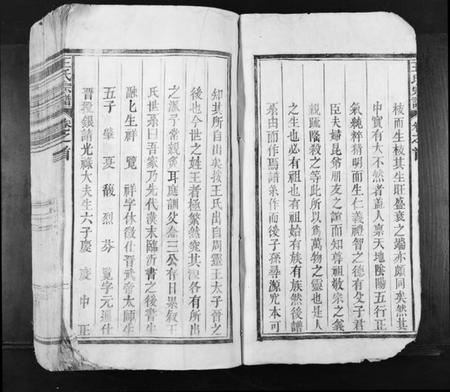 王氏宗譜 卷之首
枝而生枝其生旺盛衰之端亦頗同矣然其
中實有大不然者蓋人稟天地陰陽五行正
氣純粹精明而生仁義禮智之德有父子君
臣夫婦昆弟朋友之誼而知尊祖敬宗之義
親疎隆殺之等此所以為萬物之靈也是人
之生也必有祖也有祖始有族有族然後譜
系由而作焉譜系作而後子孫尋源究本可
知其所自出矣按王氏出自周靈王太子晉之
後也今世之姓王者極繁然究其源各有所出
之源子常親炙耳庭訓父叅三公有日果叙王
氏世系曰吾家乃先代漢末臨沂書之後書生
融匕生祥覽 祥字休徵仕晋武帝太師生
五子肇夏馥烈芬 覽字元通仕
晋授銀請光祿大夫生六子慶 中正
王氏宗譜 卷之首